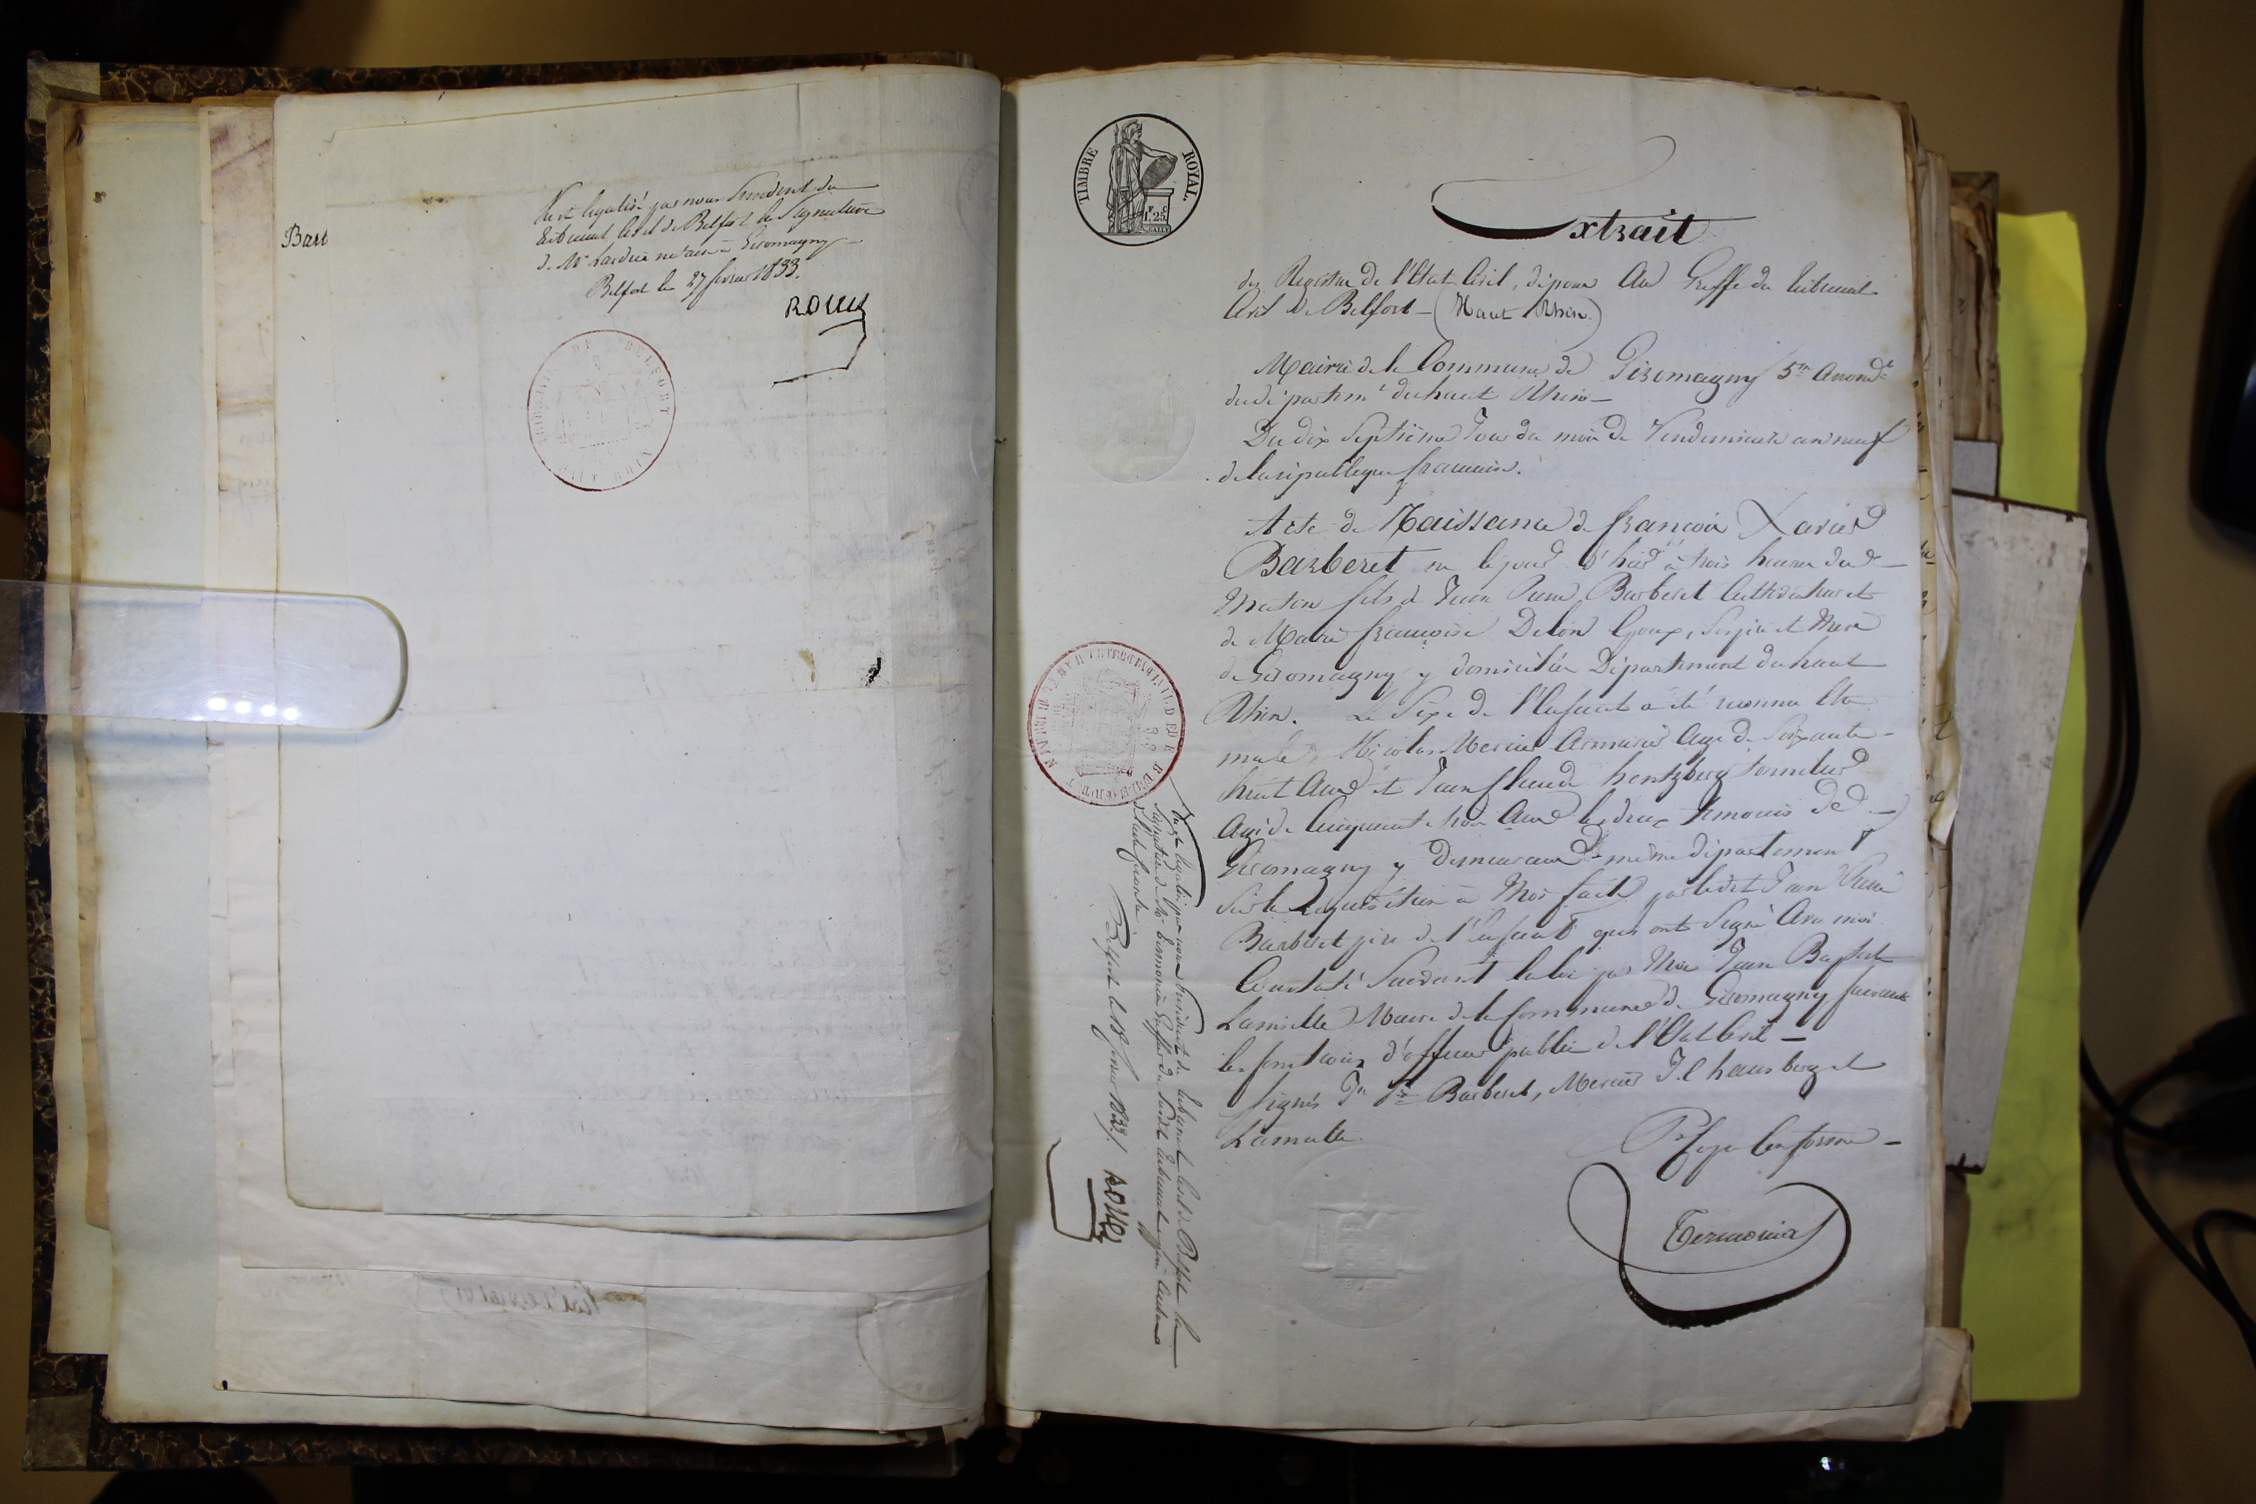 Bart
Vu et légalisé par nous Président du
tribunal Civil de Belfort la Signature
de Me Lardier notaire à Giromagny
Belfort le 27 février 1833.
TIMBRE ROYAL
F. C.
1, 25
Extrait
des Registres de l'Etat Civil, déposés Au Greffe du tribunal
Civil de Belfort - (Haut Rhin.)
Mairie de la Commune de Giromagny 5me Arrondt
du départemt du haut Rhin -
Du dix Septième Jour du mois de Vendemiaire an neuf
de la république française.
Acte de Naissance de françois Xavier
Barberet né le jour d'hier à trois heures du
Matin fils de Jean Pierre Barberet et
de Marie françoise Delon Epoux, Ses père et Mère
de Giromagny y domiciliés Département du haut
Rhin. Le Sexe de l'Enfant a été reconnu être
male, Nicolas Mercier Armurier Agé de Soixante
huit Ans et Jean Claude hentzberg tonnelier
Agé de Cinquante trois Ans les deux témoins de
Giromagny y demeurans même département
Sur la réquisition à Moi faite par ledit Jean Pierre
Barberet père de l'Enfant qui ont Signé Avec moi
Constaté Suivant la loi par Moi Jean Baptiste
Lamielle Maire de la Commune de Giromagny faisant
les fonctions d'officier public de l'Etat Civil -
Signés Jn Pre Barberet, Mercier J. C hausberg et
Lamielle.
Pr Copie Conforme -
Vu et légalisé par nous Président du tribunal Civil de Belfort la
Signature de Mr Greffier du Susdit tribunal
Belfort le février 1833.